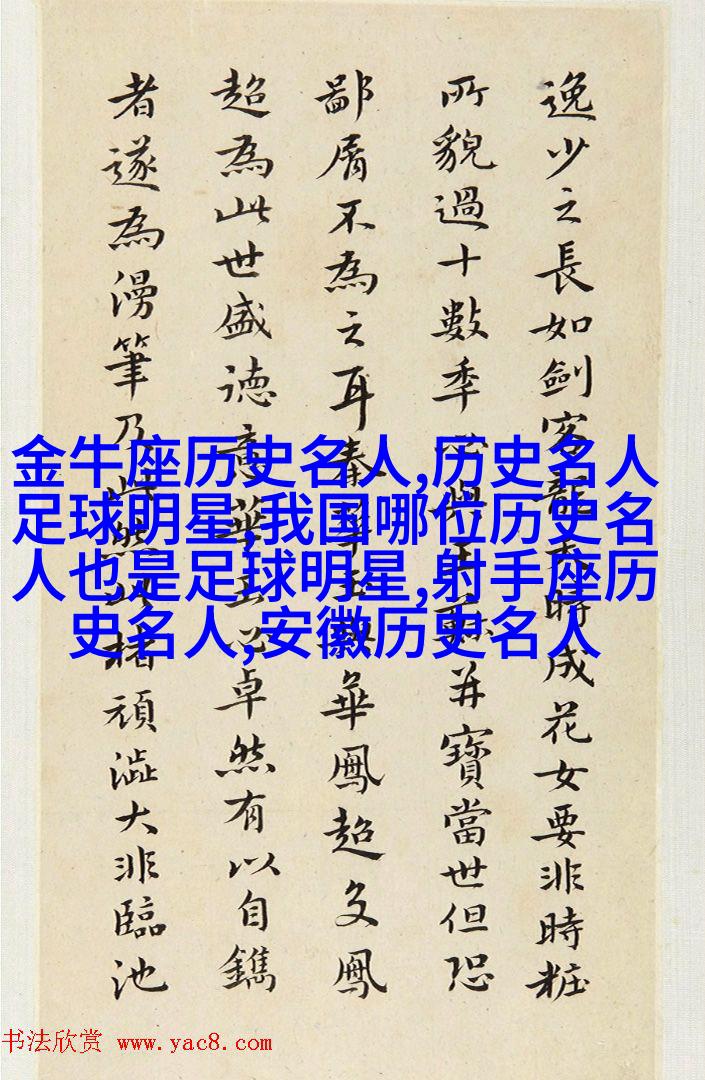 逸少之長如劍客時成花女要非時粧
所貌過十數季與王并寶當世但恐
鄙屑不為之耳奉華鳳超爻鳳
超為此世盛德意華玉心卓然有以自鐫
者遂為漫筆乃然以楮頑澁大非臨池
金牛座历史名人,历史名人
足球明星,我国哪位历史名
人也是足球明星,射手座历
史名人,安徽历史名人
书法欣赏 www.yac8.com